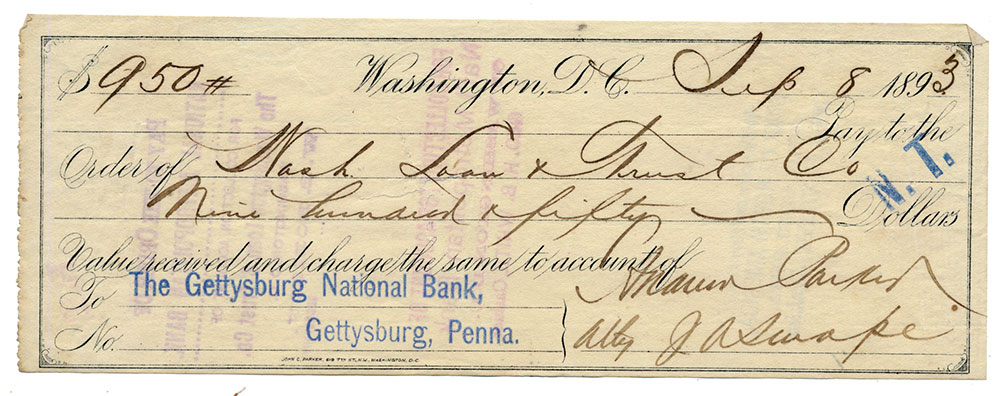 $950# Washington, D.C. Sep 8 1893
Pay to the
Order of Wash Loan & Trust Co N.T.
Nine hundred & fifty Dollars
Value received and charge the same to account of
To The Gettysburg National Bank, Parker
No. Gettysburg, Penna. atty J A Swope
JOHN C. PARKER, 619 7TH ST., N.W., WASHINGTON, D.C.